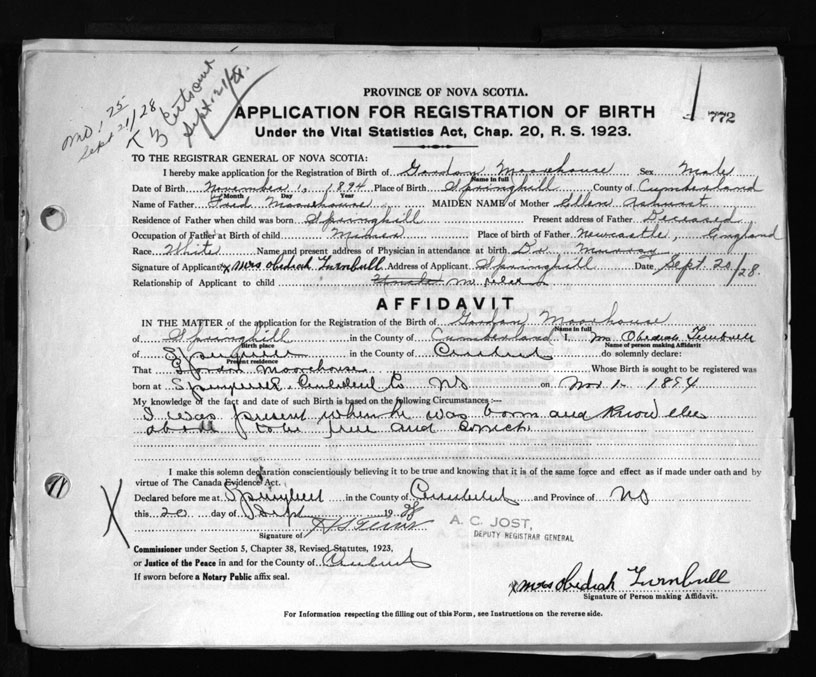 MO: 25
Sept 21/28
Sept. 21/28.
PROVINCE OF NOVA SCOTIA.
772
APPLICATION FOR REGISTRATION OF BIRTH
Under the Vital Statistics Act, Chap. 20, R. S. 1923.
TO THE REGISTRAR GENERAL OF NOVA SCOTIA:
I hereby make application for the Registration of Birth of Gordon Moorehouse Sex Male
Name in full
Date of Birth November 1, 1894 Place of Birth Springhill County of Cumberland
Month Day Year
Name of Father Fred Moorehouse MAIDEN NAME of Mother Ellen Ashurst
Residence of Father when child was born Springhill Present address of Father Deceased
Occupation of Father at Birth of child Miner Place of birth of Father Newcastle, England
Race White Name and present address of Physician in attendance at birth Dr Murray
Signature of Applicant x Mrs Obediah Turnbull Address of Applicant Springhill Date Sept. 20/28.
Relationship of Applicant to child
AFFIDAVIT
IN THE MATTER of the application for the Registration of the Birth of Gordon Moorhouse
of Springhill in the County of Cumberland I, Mrs Obediah Turnbull
Birth place Name of person making Affidavit
of Springhill in the County of Cumberland do solemnly declare:
Present residence
That Gordon Moorhouse Whose Birth is sought to be registered was
born at Springhill Cumberland Co NS on Nov 1- 1894
My knowledge of the fact and date of such Birth is based on the following Circumstances:—
I was present when he was born and know the
above to be true and correct.
I make this solemn declaration conscientiously believing it to be true and knowing that it is of the same force and effect as if made under oath and by
virtue of The Canada Evidence Act.
Declared before me at Springhill in the County of Cumberland and Province of NS
this 20 day of Sept 1928
Signature of
A. C. JOST,
DEPUTY REGISTRAR GENERAL
Commissioner under Section 5, Chapter 38, Revised Statutes, 1923,
or Justice of the Peace in and for the County of Cumberland
If sworn before a Notary Public affix seal.
x Mrs Obediah Turnbull
Signature of Person making Affidavit.
For Information respecting the filling out of this Form, see Instructions on the reverse side.